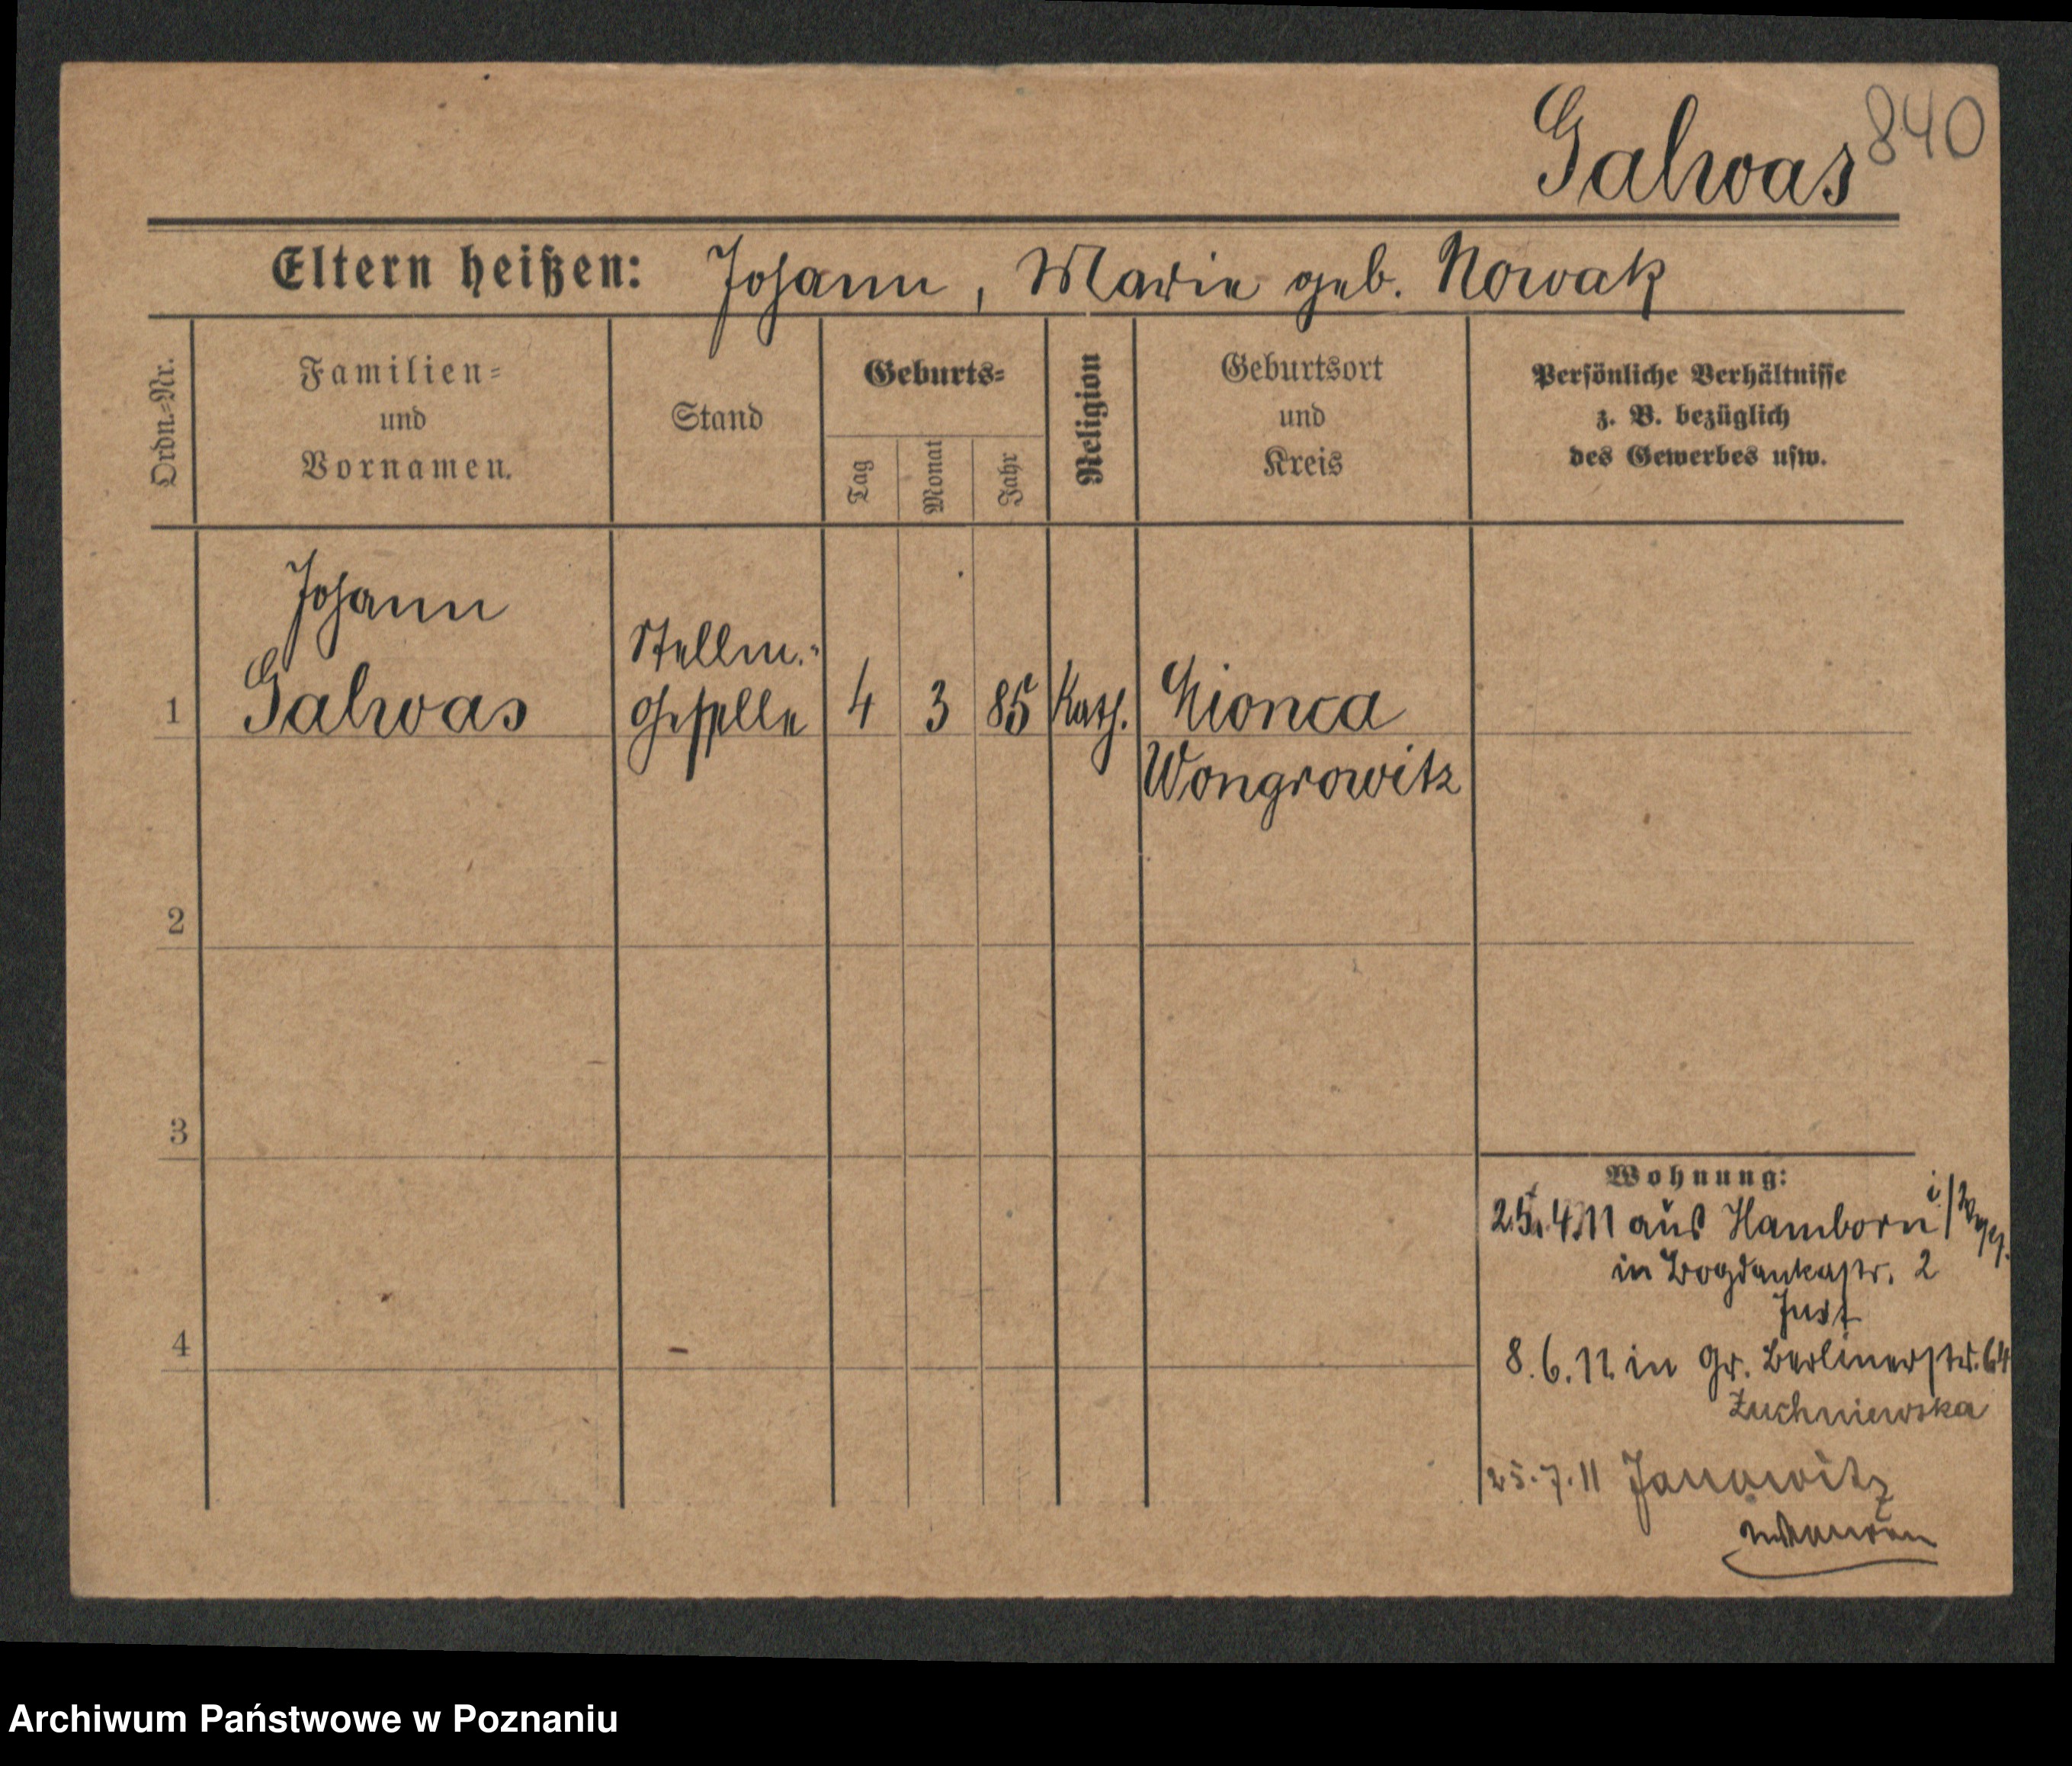 Galwas 840
Eltern heißen: Johann, Marie geb. Nowak
Ordn.=Nr.
Familien=
und
Vornamen.
Stand
Geburts=
Tag
Monat
Jahr
Religion
Geburtsort
und
Kreis
Persönliche Verhältnisse
z. B. bezüglich
des Gewerbes usw.
Johann
Stellm.=
1 Galwas geselle 4 3 85 Kath. Mionca
Wongrowitz
2
3
4
Wohnung:
25.4.11 aus Hamborn
in Bogdankastr. 2
Just
8.6.11 in Gr. Berlinerstr. 64
Zuchniewska
25.7.11 Janowitz
Archiwum Państwowe w Poznaniu